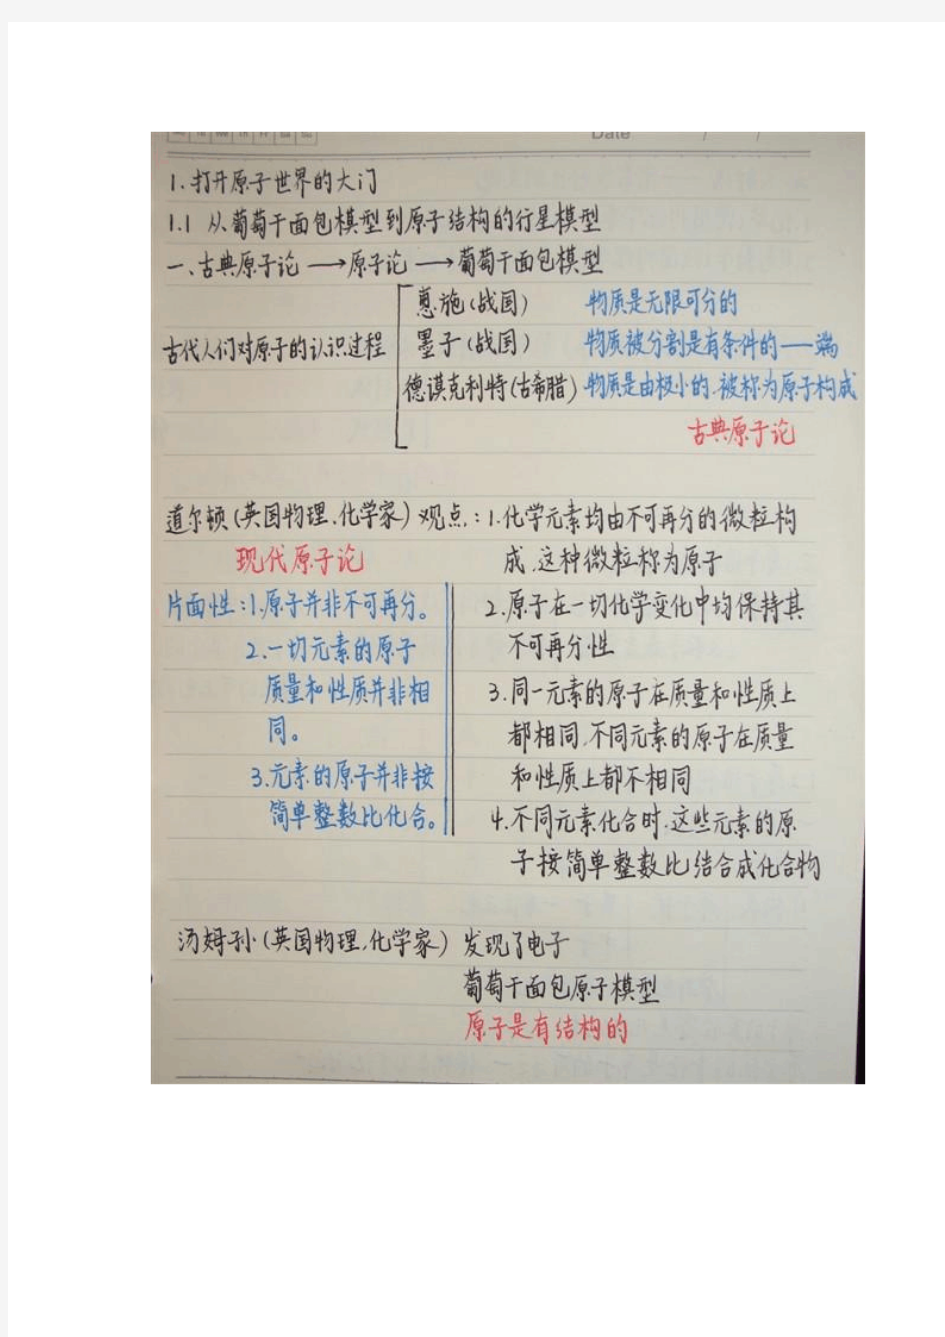 Date / /
1.打开原子世界的大门
1.1 从葡萄干面包模型到原子结构的行星模型
一、古典原子论→原子论→葡萄干面包模型
古代人们对原子的认识过程
惠施(战国) 物质是无限可分的
墨子(战国) 物质被分割是有条件的——端
德谟克利特(古希腊) 物质是由极小的,被称为原子构成
古典原子论
道尔顿(英国物理、化学家)观点:1.化学元素均由不可再分的微粒构
成,这种微粒称为原子
2.原子在一切化学变化中均保持其
不可再分性
3.同一元素的原子在质量和性质上
都相同,不同元素的原子在质量
和性质上都不相同
4.不同元素化合时,这些元素的原
子按简单整数比结合成化合物
现代原子论
片面性:1.原子并非不可再分。
2.一切元素的原子
质量和性质并非相
同。
3.元素的原子并非按
简单整数比化合。
汤姆孙(英国物理、化学家) 发现了电子
葡萄干面包原子模型
原子是有结构的